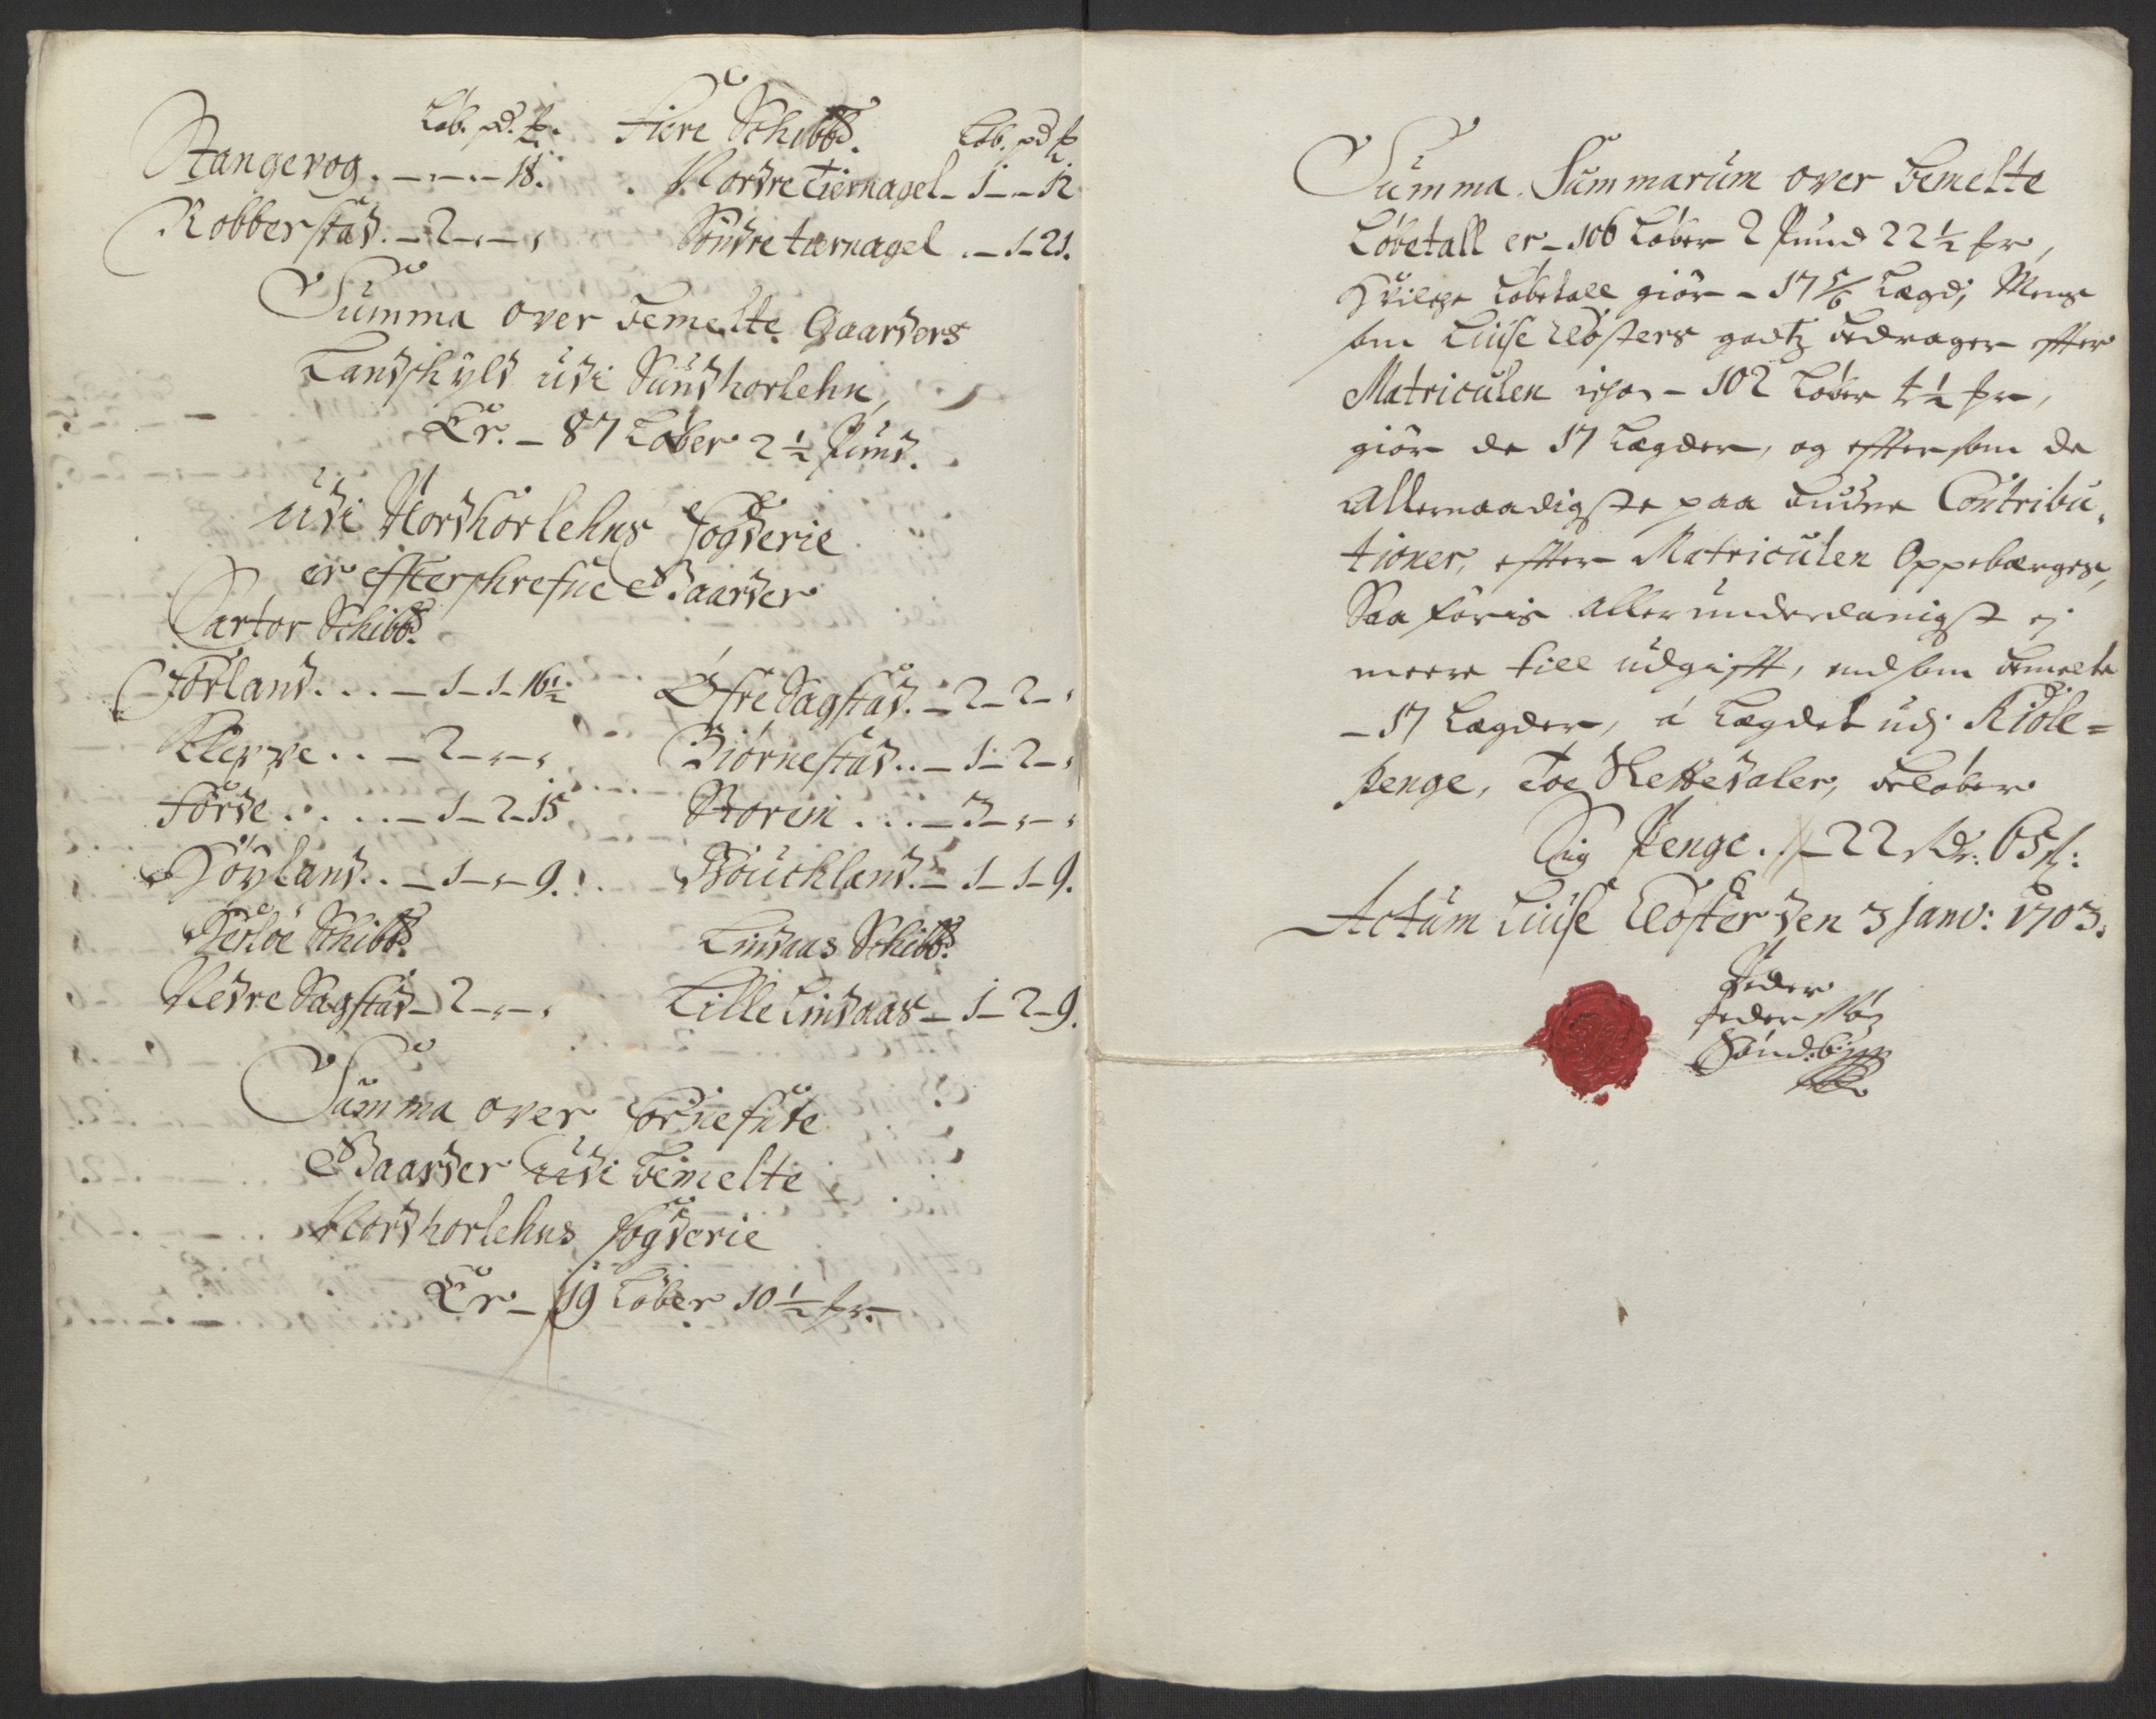 Løb. pd. ꝑ. Fiere Schibbꝺ. Løb. pd ꝑ
Stangevog. - - - - 18. . Nordre Tiernagel - 1 - - 12
Robberstad. - 2 - - - Söndre tærnagel . - 1 - 21.
Summa over bemelte Gaarders
Landskyld udi Sundhorlehn,
Er. - 87 Løber 2 ½ Pund.
udi Nordhorlehns fogderie
er effterskrefne Gaarder
Sartor Schibbꝺ.
Förland. . . - 1 - 1 - 16½ Øfre Sagstad. - 2 - 2 -
Kleppe . . - 2 - - - Biörnestad. . - 1 - 2 -
Förde . . . . - 1 - 2 - 15 Storem . . . - 3 - - -
Höyland. . - 1 - - 9. Böuckland. - 1 - 1 - 9.
Herlöe Schibbꝺ. Lindaas Schibbꝺ.
Nedre Sagstad - 2 - - - Lille Lindaas - 1 - 2 - 9.
Summa over fornefnte
Gaarder udi bemelte
Nordhorlehns fogderie
Er - 19 Løber 10 ½ ꝑr.
Summa Summarum over bemelte
Løbetall er - 106 Løber 2 Pund 22 ½ ꝑr,
Hvilche Løbetall giør - 17 5/6 Lægd, Mens
som Liuse Closters godtz bedrager effter
Matriculen - 102 Løber ꝑr,
giør de 17 Lægder, og effter som de
Allernaadigste paa budne Contribu-
tioner, effter Matriculen Oppebærges,
Saa föris allerunderdanigst ej
meere till udgifft, end som bemelte
- 17 Lægder, á Lægdet udj Kiole=
penge, Toe Slettedaler, beløber
Sig Penge. - 22 Rdr: 64 s:
Actum Liuse Closter den 3 Janv: 1703.
Peder
Pedersön